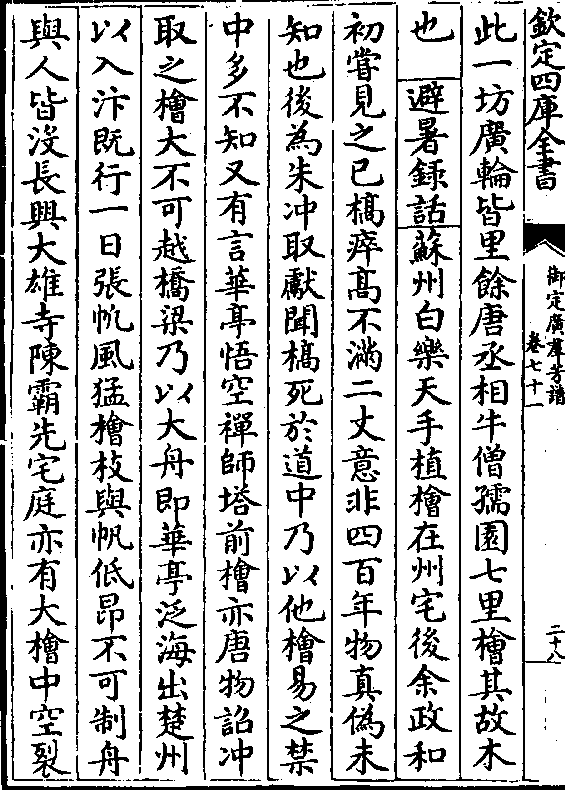 欽定四庫全書
御定廣群芳譜
卷七十一
二十八
此一坊廣輪皆里餘唐丞相牛僧孺園七里檜其故木
也　避暑錄話蘇州白樂天手植檜在州宅後余政和
初嘗見之已槁瘁高不滿二丈意非四百年物真偽未
知也後為朱沖取獻聞槁死於道中乃以他檜易之禁
中多不知又有言華亭悟空禪師塔前檜亦唐物詔沖
取之檜大不可越橋梁乃以大舟即華亭泛海出楚州
以入汴既行一日張帆風猛檜枝與帆低昂不可制舟
與人皆沒長興大雄寺陳霸先宅庭亦有大檜中空裂